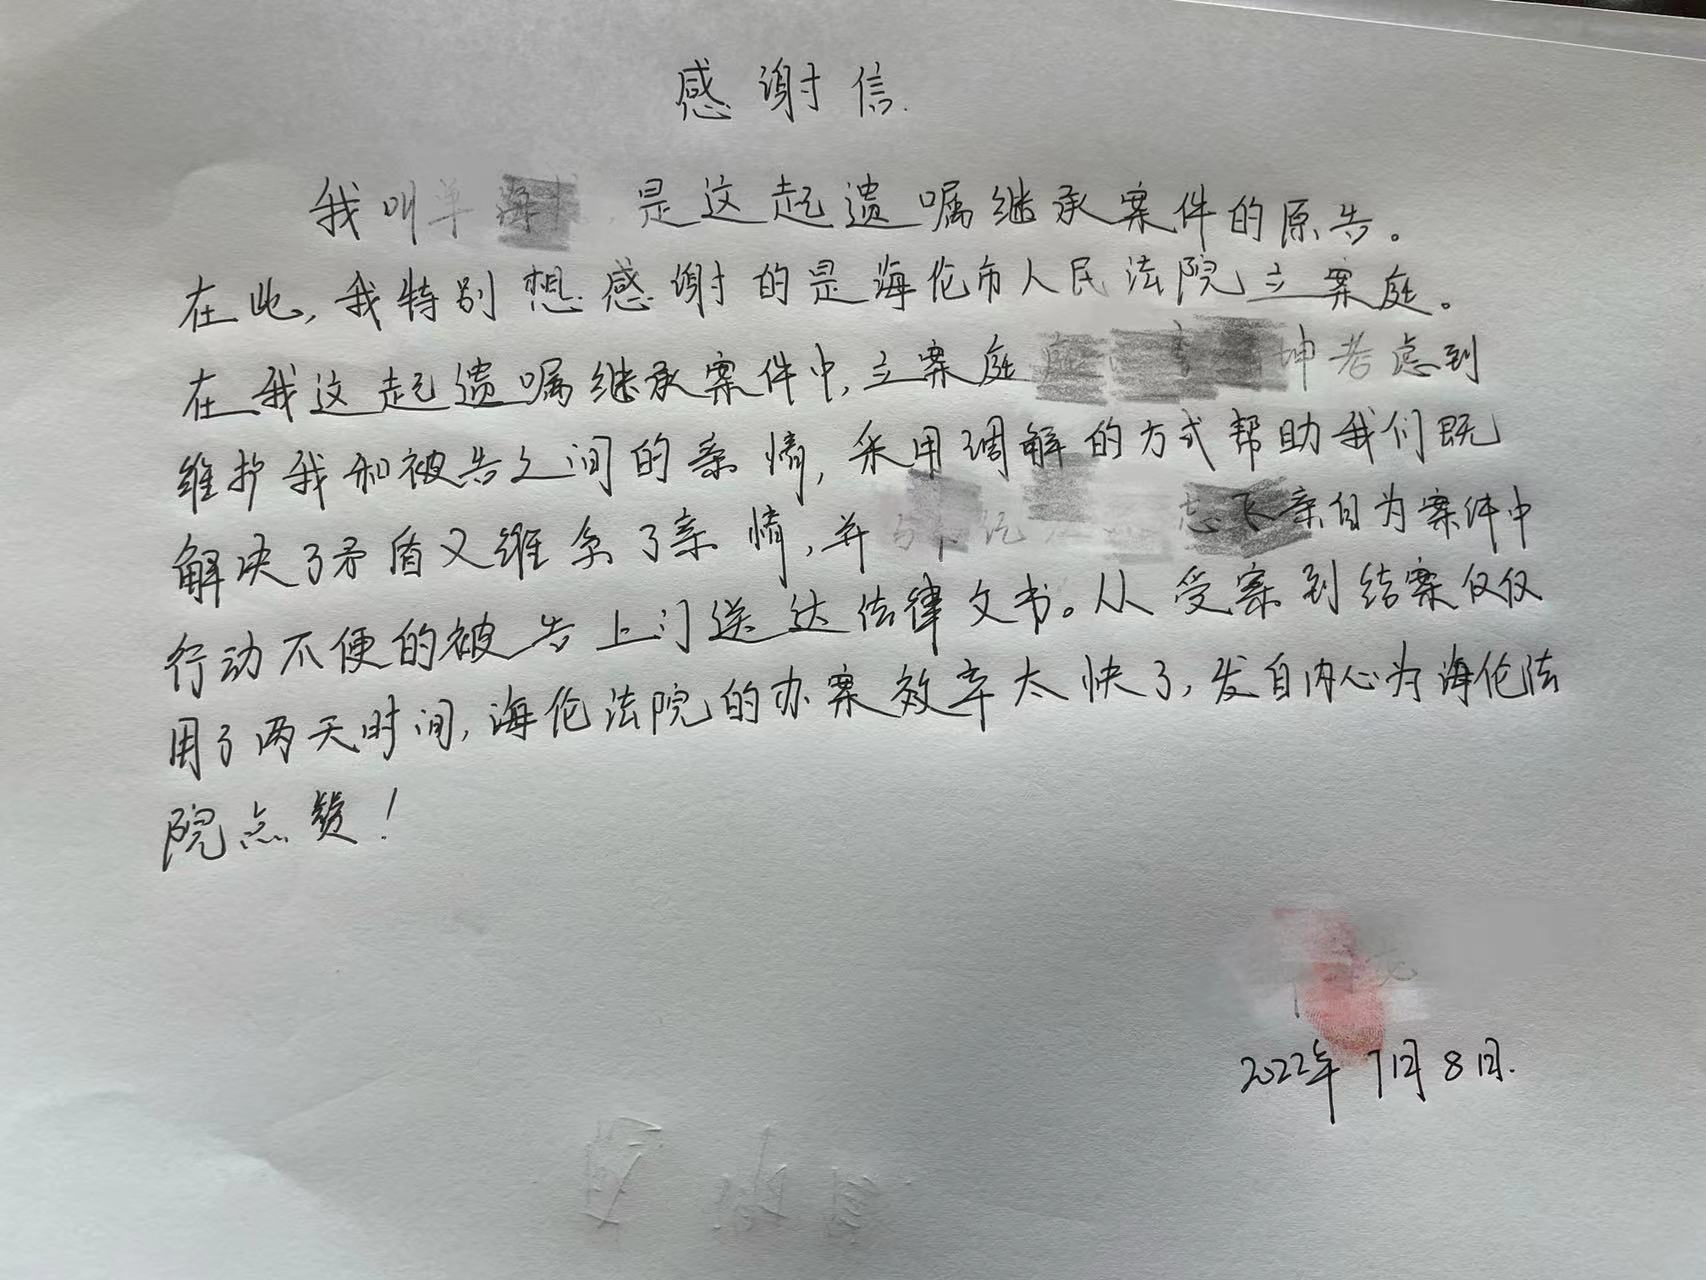 感谢信.
我叫单海 是这起遗嘱继承案件的原告。
在此,我特别想感谢的是海伦市人民法院立案庭。
在我这起遗嘱继承案件中,立案庭 坤考虑到
维护我和被告之间的亲情,采用调解的方式帮助我们既
解决了矛盾又维系了亲情,并 飞亲自为案件中
行动不便的被告上门送达法律文书。从受案到结案仅仅
用了两天时间,海伦法院的办案效率太快了,发自内心为海伦法
院点赞!
2022年7月8日.